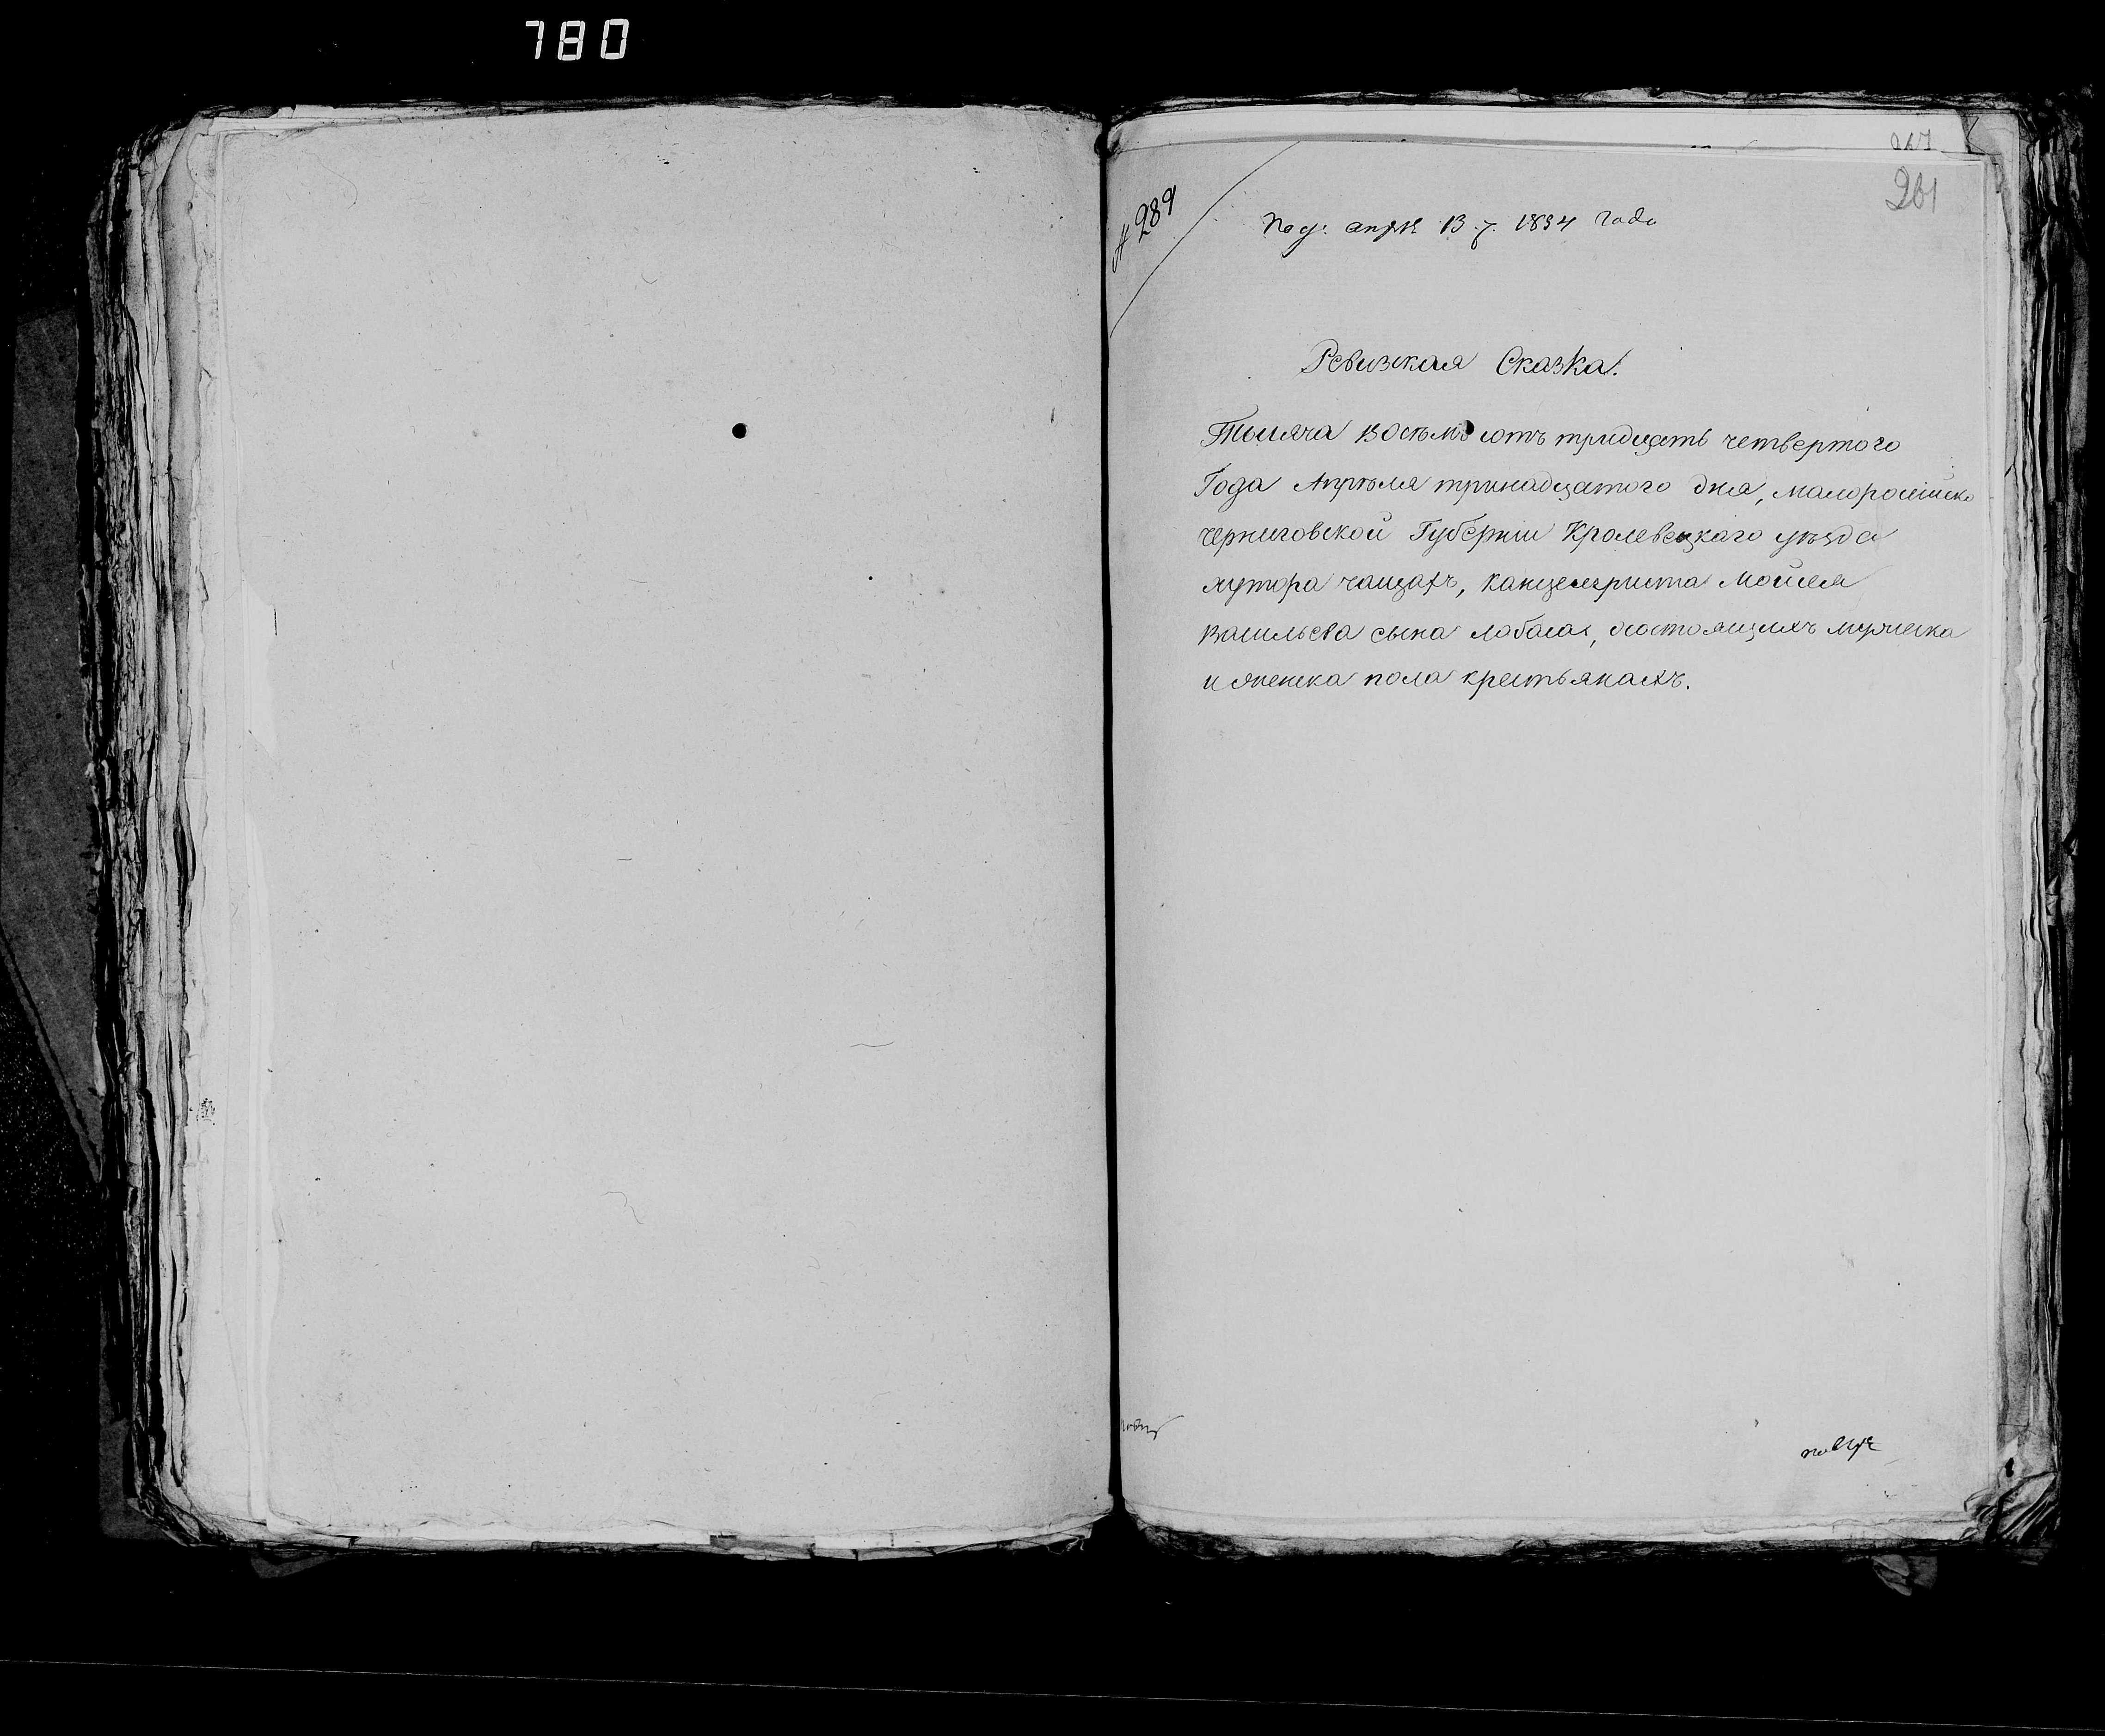 780
261
№ 289
Под: апрѣ 13 д. 1834 года
Ревизкая Сказка.
Тысяча восѣмъ сотъ тридцать четвертого
Года Апрѣля тринадцатого дня, малоросійско
черниговской Губерніи Кролевецкаго уѣзда
хутора чащахъ, канцеляриста Моисея
васильева сына лобаса, состоящихъ мужеска
и женска пола крестьянахъ.